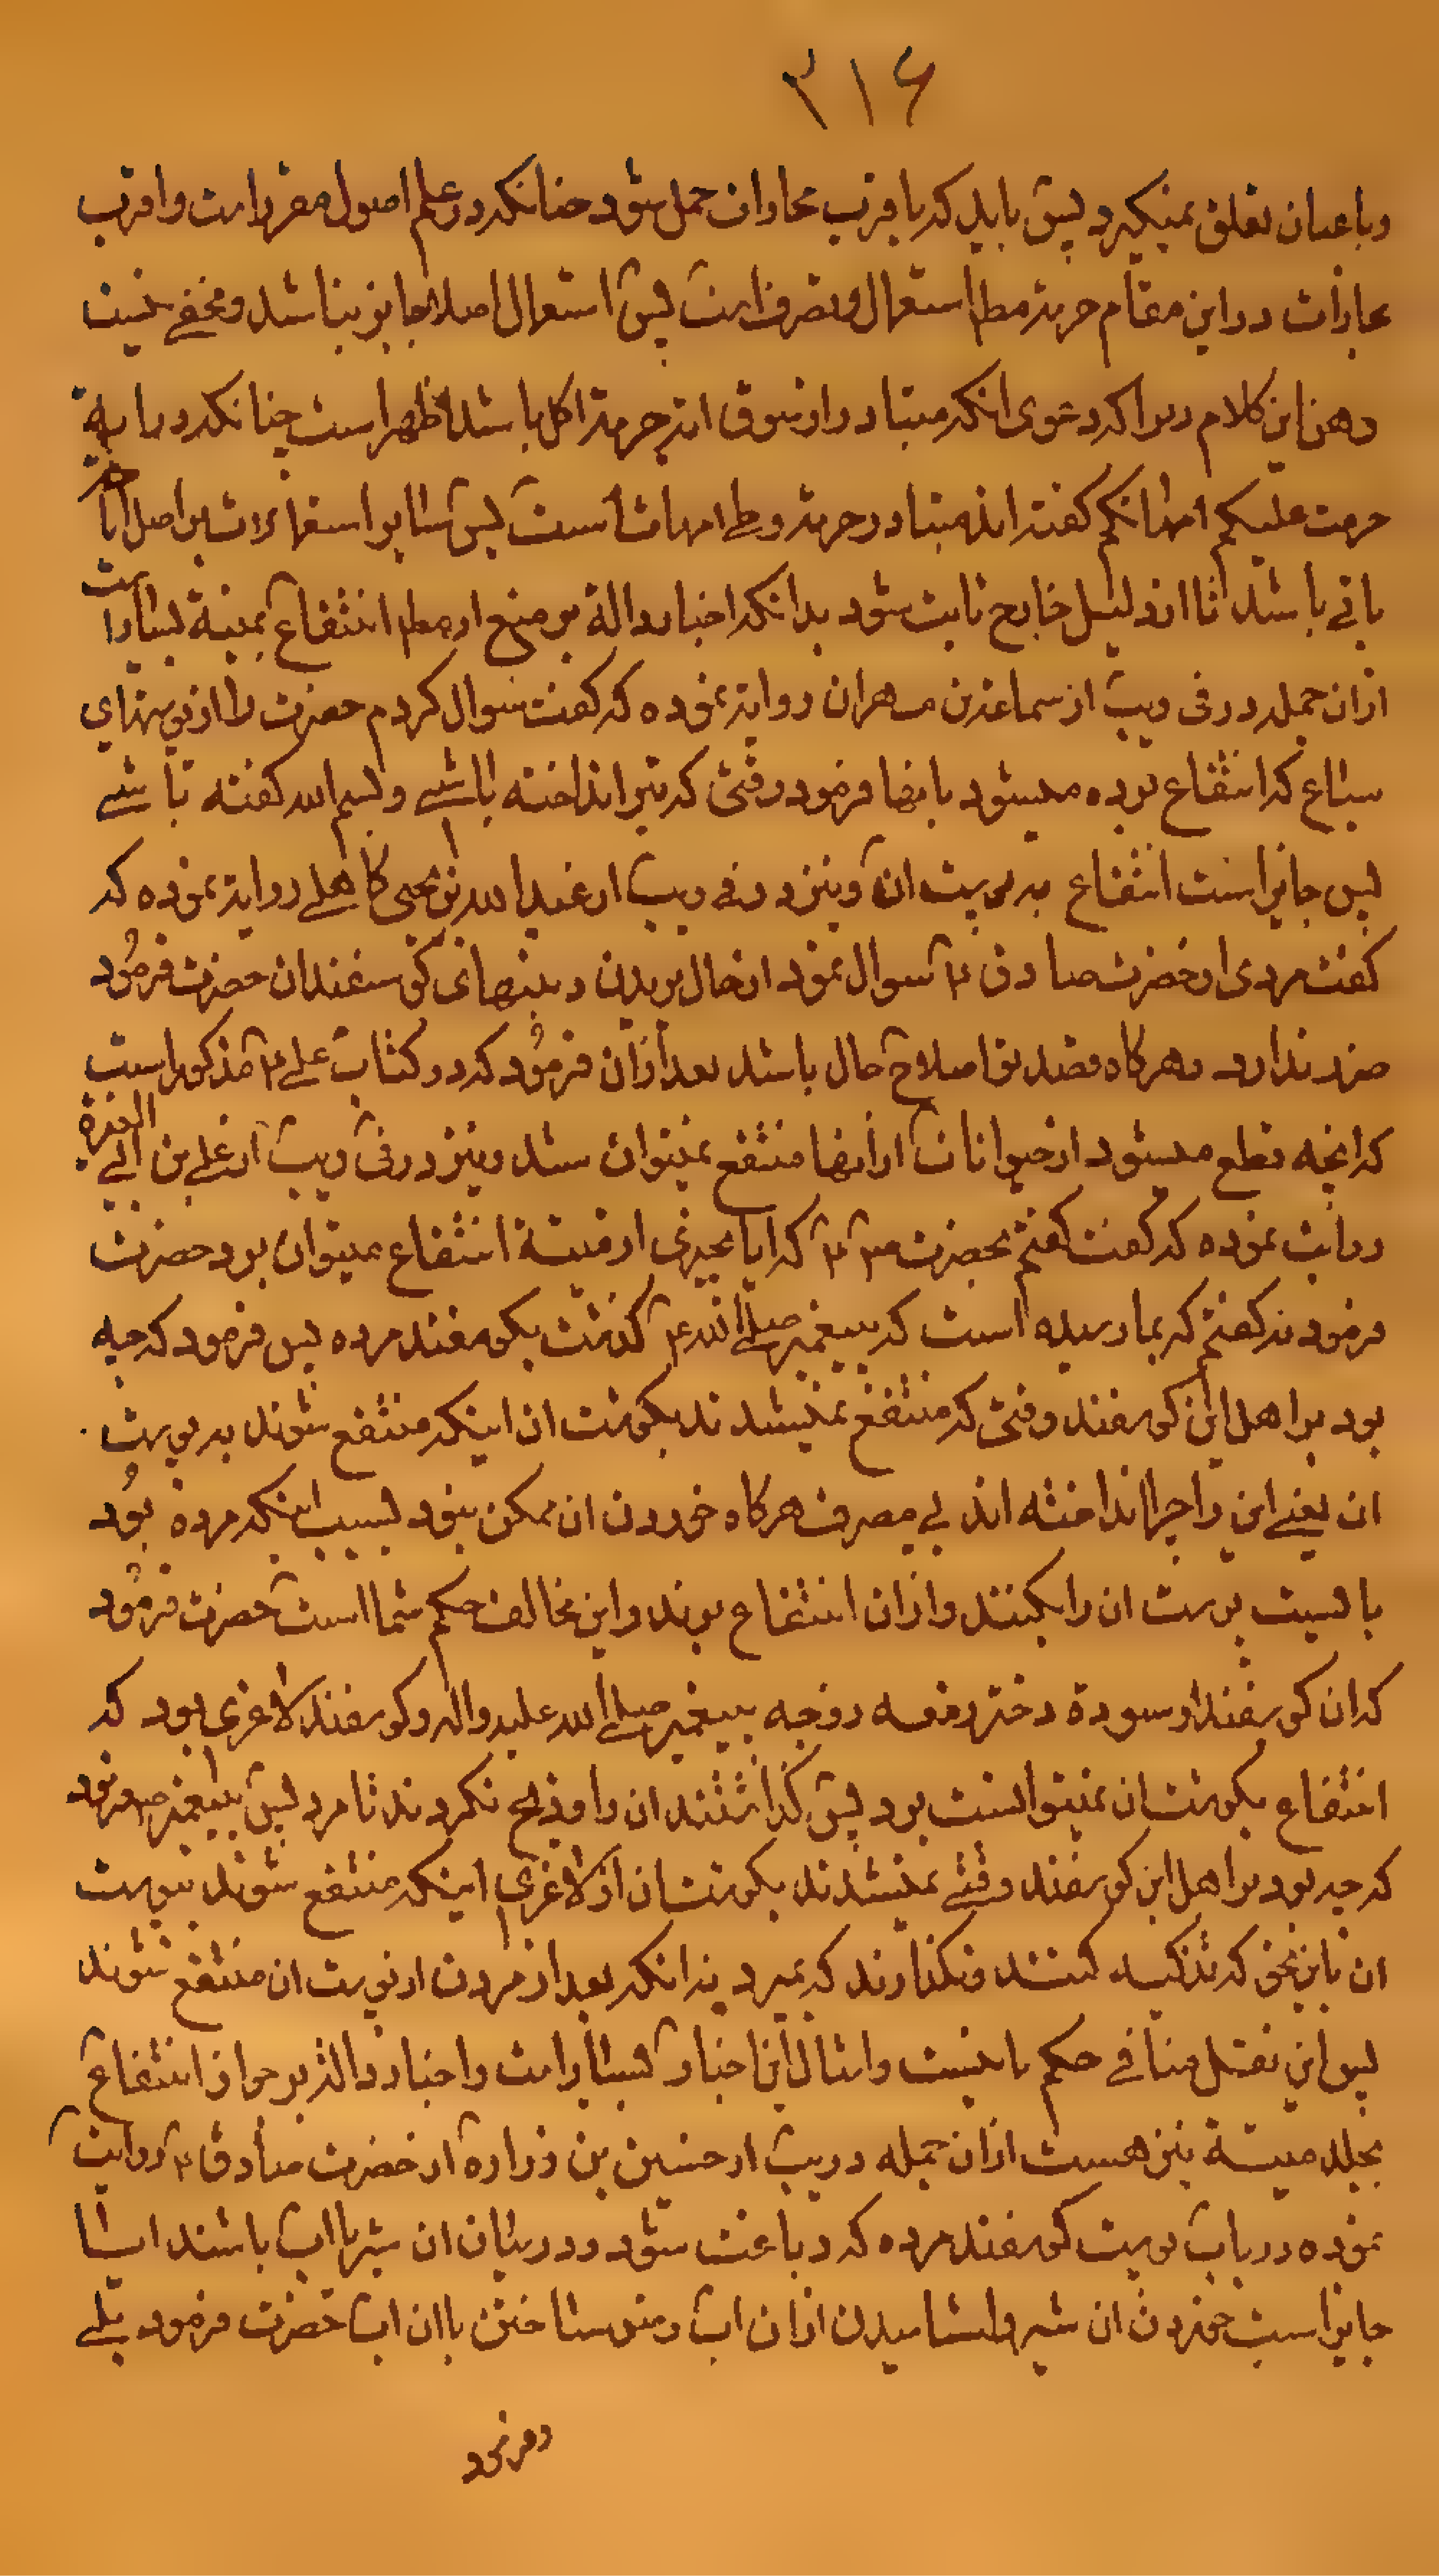 ۳۱۶
وباعیان تعلق نمیگیرد پس باید که باقرب مجازات حمل شود چنانکه در علم اصول مقرر است واقرب
مجازات در این مقام حرمة مطلم استعمال وتصرف است پس استعمال اصلا جایز نباشد ومخفی نیست
وهن این کلام زیرا که دعوی آنکه متبادر از سوق ایه حرمة اکل باشد اظهر است چنانکه در مآیة
حرمت علیکم امهاتکم گفته اند متبادر حرمة وطی امهات است پس سایر استعمالات بر اصل اباحة
باقی باشد تا از دلیل خارج ثابت شود بدانکه اخبار داله بر منع از مطلم انتفاع بمیتة بسیار است
از ان جمله در فی ویب از سماعة بن مهران روایة نموده که گفت سوال کردم حضرت را از پوستهای
سباع که انتفاع برده میشود بانها فرمود وقتی که تیر انداخته باشی وبسم الله گفته باشی
پس جایز است انتفاع به پوست ان ونیز در فی ویب از عبدالله بن یحیی کاهلی روایة نموده که
گفت مردی از حضرت صادق ع سوال نمود از حال بریدن دنبهای گوسفندان حضرت فرمود
ضرر ندارد هرگاه قصد تو اصلاح حال باشد بعد از آن فرمود که در کتاب علی ع مذکور است
که انچه قطع میشود از حیوانات از آنها منتفع نمیتوان شد ونیز در فی ویب از علی بن ابی المغیرة
روایت نموده که گفت گفتم بحضرت ص ع که ایا بچیزی از میتة انتفاع میتوان برد حضرت
فرمود نه گفتم که بما رسیده است که پیغمبر صلی الله ع گذشت بگوسفند مرده پس فرمود که چه
بود بر اهل این گوسفند وقتی که منتفع نمیشدند بگوشت ان اینکه منتفع شوند به پوست
ان یعنی این را چرا انداخته اند بی مصرف هرگاه خوردن ان ممکن نبود بسبب اینکه مرده بود
بایست پوست ان را بکنند واز ان انتفاع برند واین مخالف حکم شما است حضرت فرمود
که ان گوسفند از سودة دختر زمعه زوجه پیغمبر صلی الله علیه واله وگوسفند لاغری بود که
انتفاع بگوشت ان نمیتوانست برد پس گذاشتند ان را وذبح نکردند تا مرد پس پیغمبر ص فرمود
که چه بود بر اهل این گوسفند وقتی نمیشدند بگوشت ان از لاغری اینکه منتفع شوند بپوست
ان باین نحو که تذکیه کنند ونگذارند که بمیرد نه انکه بعد از مردن از پوست ان منتفع شوند
پس این نقل منافی حکم ما نیست وامثال این اخبار بسیار است واخبار داله بر جواز انتفاع
بجلد میتة نیز هست از ان جمله در یب از حسین بن زراره از حضرت صادق ع روایت
نموده در باب پوست گوسفند مرده که دباغت شود ودر میان ان شیر یا اب باشد ایا
جایز است خوردن ان شیر واشامیدن از ان اب ووضو ساختن با ان اب حضرت فرمود بلی
وفرمود